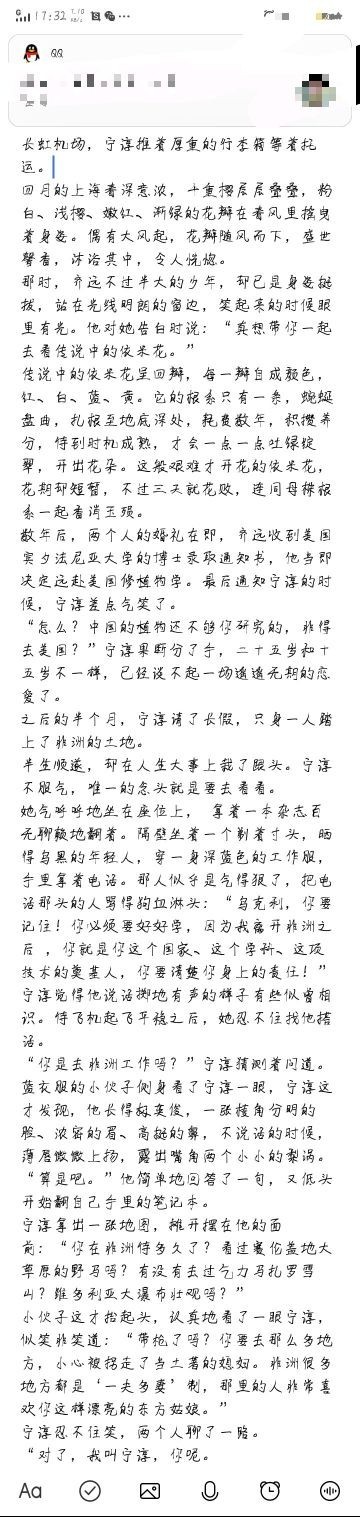 17:32
QQ
长虹机场，宁淳推着厚重的行李箱等着托
运。
四月的上海春深意浓，千重樱层层叠叠，粉
白、浅樱、嫩红、渐绿的花瓣在春风里摇曳
着身姿。偶有大风起，花瓣随风而下，盛世
馨香，沐浴其中，令人恍惚。
那时，齐远不过半大的少年，却已是身姿挺
拔，站在光线明朗的窗边，笑起来的时候眼
里有光。他对她告白时说：“真想带你一起
去看传说中的依米花。”
传说中的依米花呈四瓣，每一瓣自成颜色，
红、白、蓝、黄。它的根系只有一条，蜿蜒
盘曲，扎根至地底深处，耗费数年，积攒养
分，待到时机成熟，才会一点一点吐绿绽
翠，开出花朵。这般艰难才开花的依米花，
花期却短暂，不过三天就花败，连同母株根
系一起香消玉殒。
数年后，两个人的婚礼在即，齐远收到美国
宾夕法尼亚大学的博士录取通知书，他当即
决定远赴美国修植物学。最后通知宁淳的时
候，宁淳差点气笑了。
“怎么？中国的植物还不够你研究的，非得
去美国？”宁淳果断分了手，二十五岁和十
五岁不一样，已经谈不起一场遥遥无期的恋
爱了。
之后的半个月，宁淳请了长假，只身一人踏
上了非洲的土地。
半生顺遂，却在人生大事上栽了跟头。宁淳
不服气，唯一的念头就是要去看看。
她气呼呼地坐在座位上， 拿着一本杂志百
无聊赖地翻着。隔壁坐着一个剃着寸头，晒
得乌黑的年轻人，穿一身深蓝色的工作服，
手里拿着电话。那人似乎是气得狠了，把电
话那头的人骂得狗血淋头：“乌克利，你要
记住！你必须要好好学，因为我离开非洲之
后 ，你就是你这个国家、这个学科、这项
技术的奠基人，你要清楚你身上的责任！”
宁淳觉得他说话掷地有声的样子有些似曾相
识。待飞机起飞平稳之后，她忍不住找他搭
话。
“你是去非洲工作吗？”宁淳猜测着问道。
蓝衣服的小伙子侧身看了宁淳一眼，宁淳这
才发现，他长得颇英俊，一张棱角分明的
脸、浓密的眉、高挺的鼻，不说话的时候，
薄唇微微上扬，露出嘴角两个小小的梨涡。
“算是吧。”他简单地回答了一句，又低头
开始翻自己手里的笔记本。
宁淳拿出一张地图，摊开摆在他的面
前：“你在非洲待多久了？看过塞伦盖地大
草原的野马吗？有没有去过乞力马扎罗雪
山？维多利亚大瀑布壮观吗？”
小伙子这才抬起头，认真地看了一眼宁淳，
似笑非笑道：“带枪了吗？你要去那么多地
方，小心被拐走了当土著的媳妇。非洲很多
地方都是‘一夫多妻’制，那里的人非常喜
欢你这样漂亮的东方姑娘。”
宁淳忍不住笑，两个人聊了一路。
“对了，我叫宁淳，你呢。
Aa